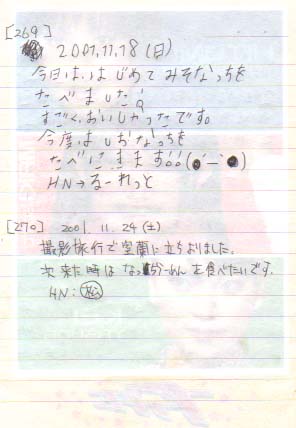 [269]
2001,11,18(日)
今日は、はじめてみそなっちを
たべました。
すごくおいしかったです。
今度はしおなっちを
たべにきます!!(●´ー`●)
HN→るーれっと
[270] 2001.11.24(土)
撮影旅行で室蘭に立ちよりました。
次来た時はなっちらーめんを食べたいです。
HN:松